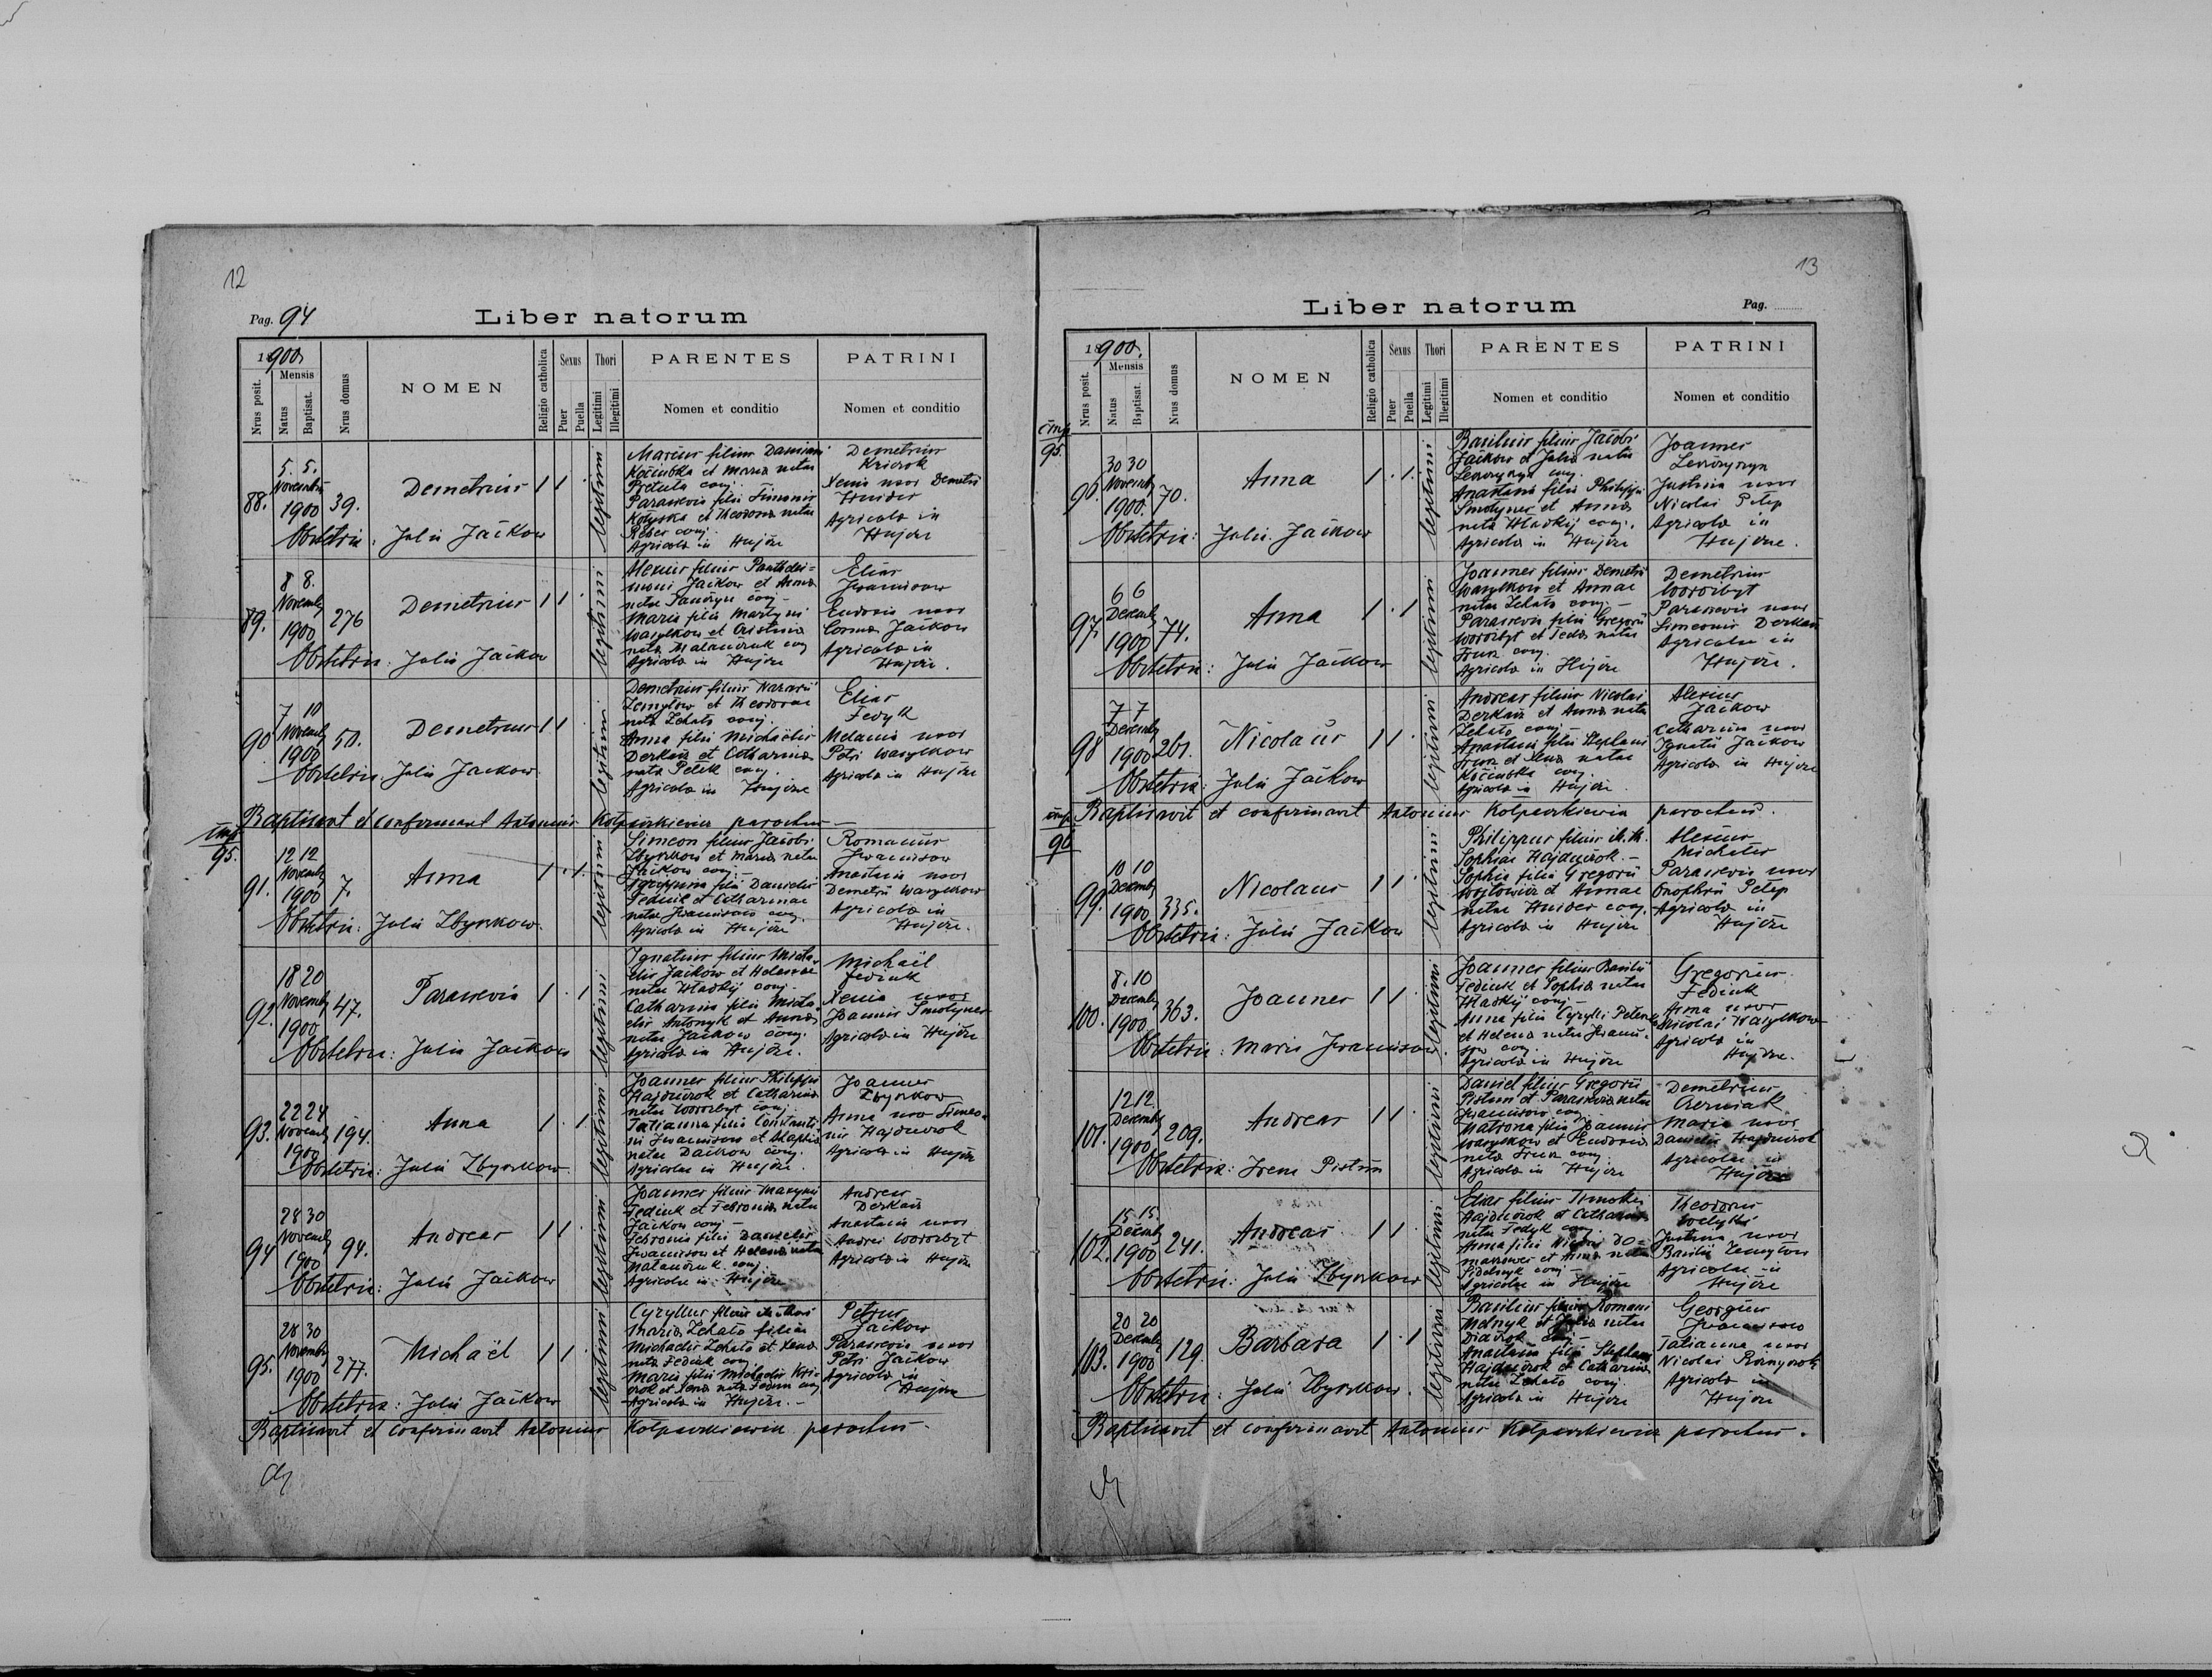 12
Pag. 94
Liber natorum
1900.
Nrus posit.
Mensis
Natus
Baptisat.
Nrus domus
NOMEN
Religio catholica
Sexus
Puer
Puella
Thori
Legitimi
Illegitimi
PARENTES
Nomen et conditio
PATRINI
Nomen et conditio
88.
5. 5.
Novembris
1900
39.
Demetrius
1 1
legitimi
Marcus filius Damiani
Kociubka et Maria natae
conj.
Parascevia filia Simeonis
et Theodora natae
conj.
Agricola in Hujcze
Demetrius
Xenia uxor Demetrii
Hnider
Agricola in
Hujcze
Obstetrix: Julia Jaćkow
89.
8 8.
Novemb
1900
276
Demetrius
1 1
legitimi
Alexius filius Pantelei=
moni Jaćkow et Anna
natae conj.
Maria filia Martyni
Wasylkow et
nata Malanczuk conj
Agricola in Hujcze
Elias
Iwanisow
Eudoxia uxor
Cosmae Jaćkow
Agricola in
Hujcze.
Obstetrix. Julia Jaćkow
90
7 10
Novemb
1900
50.
Demetrius
1 1
legitimi
Demetrius filius Nazarii
et Theodorae
nata conj.
Anna filia Michaelis
Derkacz et Catharina
nata conj.
Agricola in Hujcze
Elias
Fedyk
Melania uxor
Petri Wasylkow
Agricola in Hujcze
Obstetrix. Julia Jaćkow.
Baptisavit et confirmavit Antonius parochus
imp.
95.
91.
12 12
Novemb
1900
7.
Anna
1 . 1.
legitimi
Simeon filius Jacobi
Zbyrkow et Maria natae
Jaćkow conj.
Agrippina filia Danielis
Fediuk et Catharinae
natae Iwanisow conj.
Agricola in Hujcze
Romanus
Iwanisow
Anastasia uxor
Demetrii Wasylkow
Agricola in
Hujcze.
Obstetrix: Julia Zbyrkow.
92.
18 20
Novemb
1900
47.
Parascevia
1 . 1
legitimi
Ignatius filius Micha-
elis Jaćkow et Helenae
natae Hładkij conj.
Catharina filia Micha-
elis Antonyk et Anna
natae Jaćkow conj.
Agricola in Hujcze.
Michaël
Fediuk
Xenia uxor
Joannis Smolyniec
Agricola in Hujcze
Obstetrix: Julia Jaćkow
93.
22 24
Novemb
1900
194.
Anna
1 . 1
legitimi
Joannes filius Philippi
Hajduczok et Catharina
natae Worobyt conj.
Tatianna filia Constanti-
ni Iwanisow et Agaphia
natae Daćkow conj.
Agricolae in Hujcze.
Joannes
Zbyrkow
Anna uxor Simeo-
nis Hajduczok
Agricola in Hujcze
Obstetrix: Julia Zbyrkow.
94
28 30
Novemb
1900
94.
Andreas
1 1
legitimi
Joannes filius
Fediuk et Febronia natae
Jaćkow conj.
Febronia filia Danielis
Iwanisow et Helena nata
Malanczuk conj.
Agricolae in Hujcze
Andreas
Derkacz
Anastasia uxor
Andrei Worobyt
Agricola in Hujcze
Obstetrix: Julia Jaćkow
95.
28 30
Novemb
1900
277.
Michaël
1 1
legitimi
Cyryllus filius
Maria filiae
Michaelis et
nata Fediuk conj
Maria filia Michaelis
et nata conj
Agricola in Hujcze.
Petrus
Jaćkow
Parascevia uxor
Petri Jaćkow
Agricola in
Hujcze
Obstetrix: Julia Jaćkow
Baptisavit et confirmavit Antonius parochus.
13
Liber natorum
Pag.
1900.
Nrus posit.
Mensis
Natus
Baptisat.
Nrus domus
NOMEN
Religio catholica
Sexus
Puer
Puella
Thori
Legitimi
Illegitimi
PARENTES
Nomen et conditio
PATRINI
Nomen et conditio
imp
95.
96.
30 30
Novemb
1900.
70.
Anna
1 . 1.
legitimi
Basilius filius Jacobi
Jaćkow et Julia natae
conj.
Anastasia filia Philippi
Smolyniec et Anna
nata Hładkij conj.
Agricola in Hujcze
Joannes
Justina uxor
Nicolai Pelep
Agricola in
Hujcze.
Obstetrix: Julia Jaćkow
97.
6 6
Decemb
1900
74.
Anna
1 . 1
legitimi
Joannes filius Demetrii
Wasylkow et Annae
natae conj.
Parascevia filia Gregorii
Worobyt et Tecla natae
conj.
Agricola in Hujcze
Demetrius
Worobyt
Parascevia uxor
Simeonis Derkacz
Agricolae in
Hujcze.
Obstetrix: Julia Jaćkow
98
7 7
Decemb
1900
261.
Nicolaus
1 1
legitimi
Andreas filius Nicolai
Derkacz et Anna natae
conj.
Anastasia filia Stephani
et natae
Kociubka conj.
Agricola in Hujcze.
Alexius
Jaćkow
Catharina uxor
Ignatii Jaćkow
Agricola in Hujcze
Obstetrix: Julia Jaćkow
Baptisavit et confirmavit Antonius parochus.
imp.
96
99.
10 10
Decemb
1900
335.
Nicolaus
1 1
legitimi
Philippus filius
Sophiae Hajduczok.
Sophia filia Gregorii
Wojtowicz et Annae
natae Hnider conj.
Agricola in Hujcze
Alexius
Parascevia uxor
Onophrii Pelep
Agricola in
Hujcze
Obstetrix: Julia Jaćkow
100.
8. 10
Decemb
1900
363.
Joannes
1 1
legitimi
Joannes filius Basilii
Fediuk et Sophia natae
Hładkij conj.
Anna filia Cyrylli
et Helena natae Iwani-
sow conj
Agricola in Hujcze
Gregorius
Fediuk
Anna uxor
Nicolai Wasylkow
Agricola in
Hujcze.
Obstetrix: Maria Iwanisow.
101.
12 12
Decemb
1900
209.
Andreas
1 1
legitimi
Daniel filius Gregorii
Pistun et Parascevia natae
Iwanisow conj
Matrona filia Joannis
Wasylkow et Eudoxia
nata conj.
Agricola in Hujcze
Demetrius
Maria uxor
Danielis Hajduczok
Agricolae in
Hujcze
Obstetrix: Irene Pistun
102.
15 15
Decemb
1900
241.
Andreas
1 1
legitimi
Elias filius Timothei
Hajduczok et Catharina
natae Fedyk conj.
Anna filia
et Anna natae
conj
Agricolae in Hujcze
Theodorus
Justina uxor
Basilii
Agricolae in
Hujcze
Obstetrix: Julia Zbyrkow
103.
20 20
Decemb
1900
129.
Barbara
1 . 1
legitimi
Basilius filius Romani
Melnyk et Julia natae
conj
Anastasia filia Stephani
Hajduczok et Catharina
natae conj
Agricola in Hujcze
Georgius
Iwanisow
Tatianna uxor
Nicolai
Agricola in
Hujcze
Obstetrix: Julia Zbyrkow.
Baptisavit et confirmavit Antonius parochus.